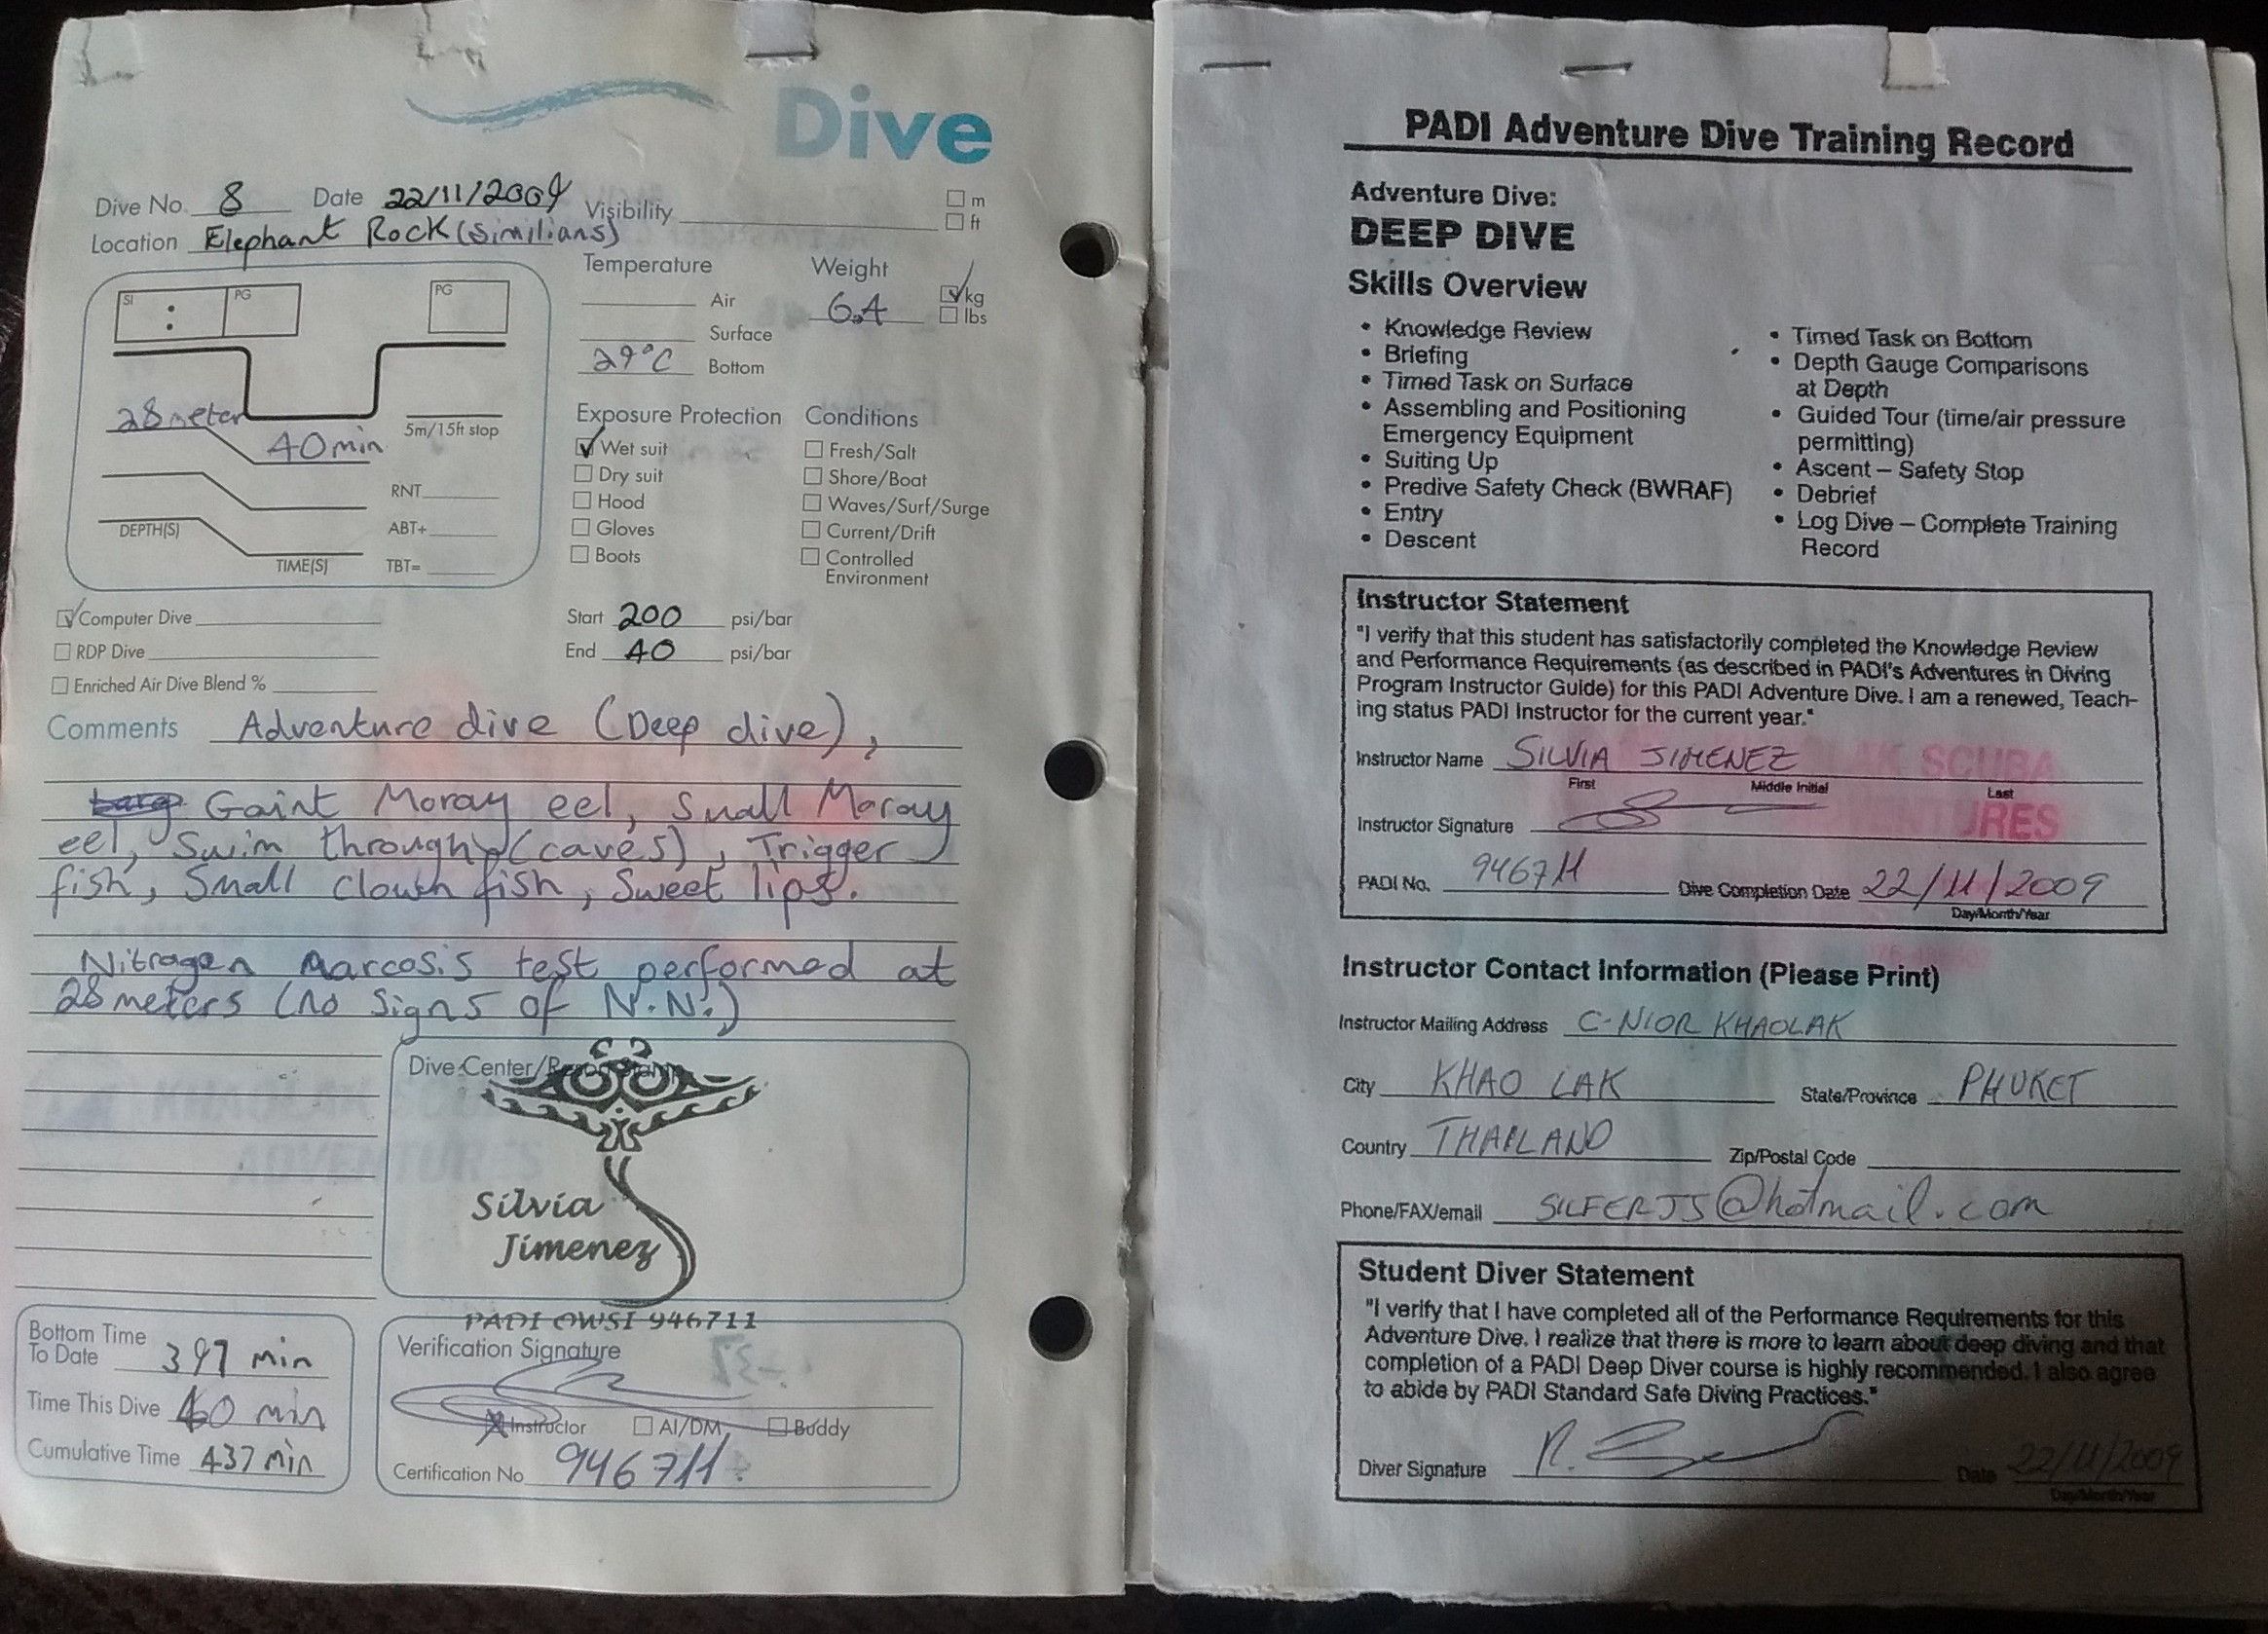 Dive
Dive No. 8 Date 22/11/2009 Visibility
m
ft
Location Elephant Rock (Similians)
SI : PG PG
28 meter
40 min
5m/15ft stop
RNT
ABT+
DEPTH(S)
TIME(S) TBT=
Temperature
Air
Surface
29°C Bottom
Weight
6.4 kg
lbs
Exposure Protection
Wet suit
Dry suit
Hood
Gloves
Boots
Conditions
Fresh/Salt
Shore/Boat
Waves/Surf/Surge
Current/Drift
Controlled
Environment
Computer Dive
RDP Dive
Enriched Air Dive Blend %
Start 200 psi/bar
End 40 psi/bar
Comments Adventure dive (Deep dive),
Gaint Moray eel, Small Moray
eel, Swim through (caves), Trigger
fish, Small clown fish, Sweet lips.
Nitrogen narcosis test performed at
28 meters (no signs of N.N.)
Dive Center/Resort Stamp
Silvia
Jimenez
PADI OWSI 946711
Bottom Time
To Date 397 min
Time This Dive 40 min
Cumulative Time 437 min
Verification Signature
Instructor AI/DM Buddy
Certification No 946711
PADI Adventure Dive Training Record
Adventure Dive:
DEEP DIVE
Skills Overview
• Knowledge Review
• Briefing
• Timed Task on Surface
• Assembling and Positioning
Emergency Equipment
• Suiting Up
• Predive Safety Check (BWRAF)
• Entry
• Descent
• Timed Task on Bottom
• Depth Gauge Comparisons
at Depth
• Guided Tour (time/air pressure
permitting)
• Ascent – Safety Stop
• Debrief
• Log Dive – Complete Training
Record
Instructor Statement
"I verify that this student has satisfactorily completed the Knowledge Review
and Performance Requirements (as described in PADI's Adventures in Diving
Program Instructor Guide) for this PADI Adventure Dive. I am a renewed, Teach-
ing status PADI Instructor for the current year."
Instructor Name SILVIA JIMENEZ
First Middle Initial Last
Instructor Signature
PADI No. 946711 Dive Completion Date 22/11/2009
Day/Month/Year
Instructor Contact Information (Please Print)
Instructor Mailing Address C-NIOR KHAOLAK
City KHAO LAK State/Province PHUKET
Country THAILAND Zip/Postal Code
Phone/FAX/email SILFERJS@hotmail.com
Student Diver Statement
"I verify that I have completed all of the Performance Requirements for this
Adventure Dive. I realize that there is more to learn about deep diving and that
completion of a PADI Deep Diver course is highly recommended. I also agree
to abide by PADI Standard Safe Diving Practices."
Diver Signature Date 22/11/2009
Day/Month/Year